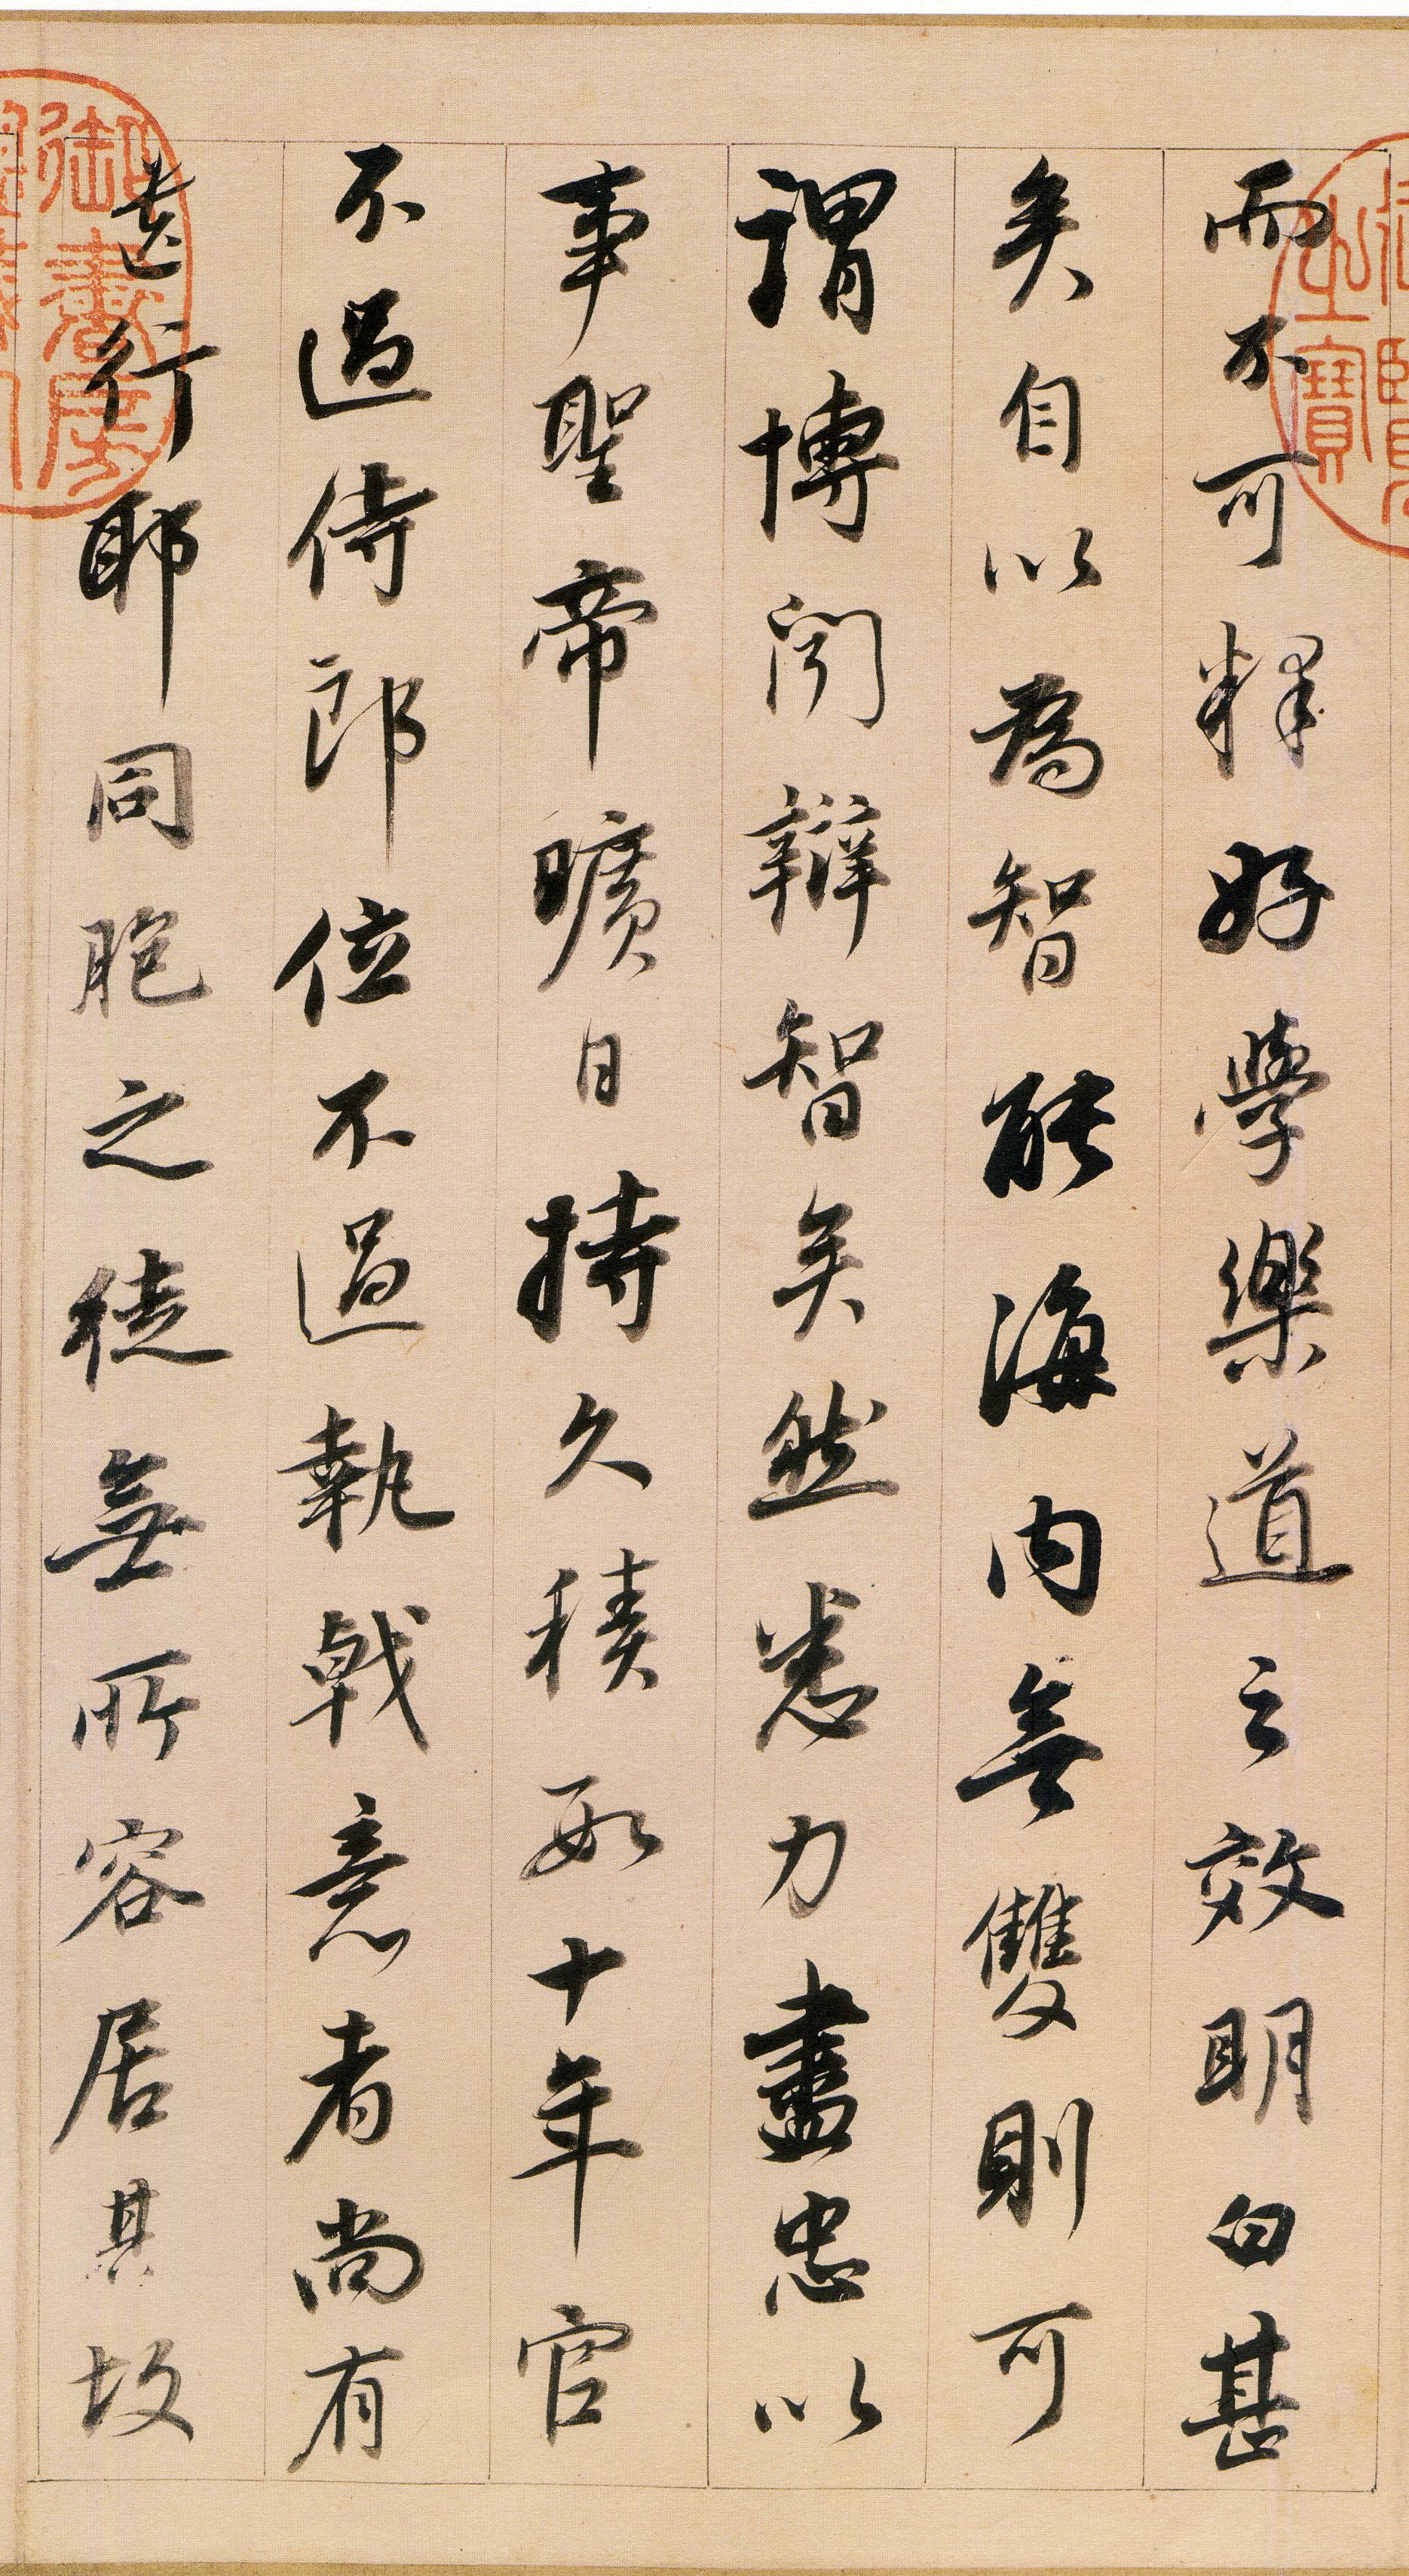 而不可釋好學樂道之效明白甚
矣自以為智能海内無雙則可
謂博聞辯智矣然悉力盡忠以
事聖帝曠日持久積數十年官
不過侍郎位不過執戟意者尚有
遺行耶同胞之徒無所容居其故
御書房
之寶